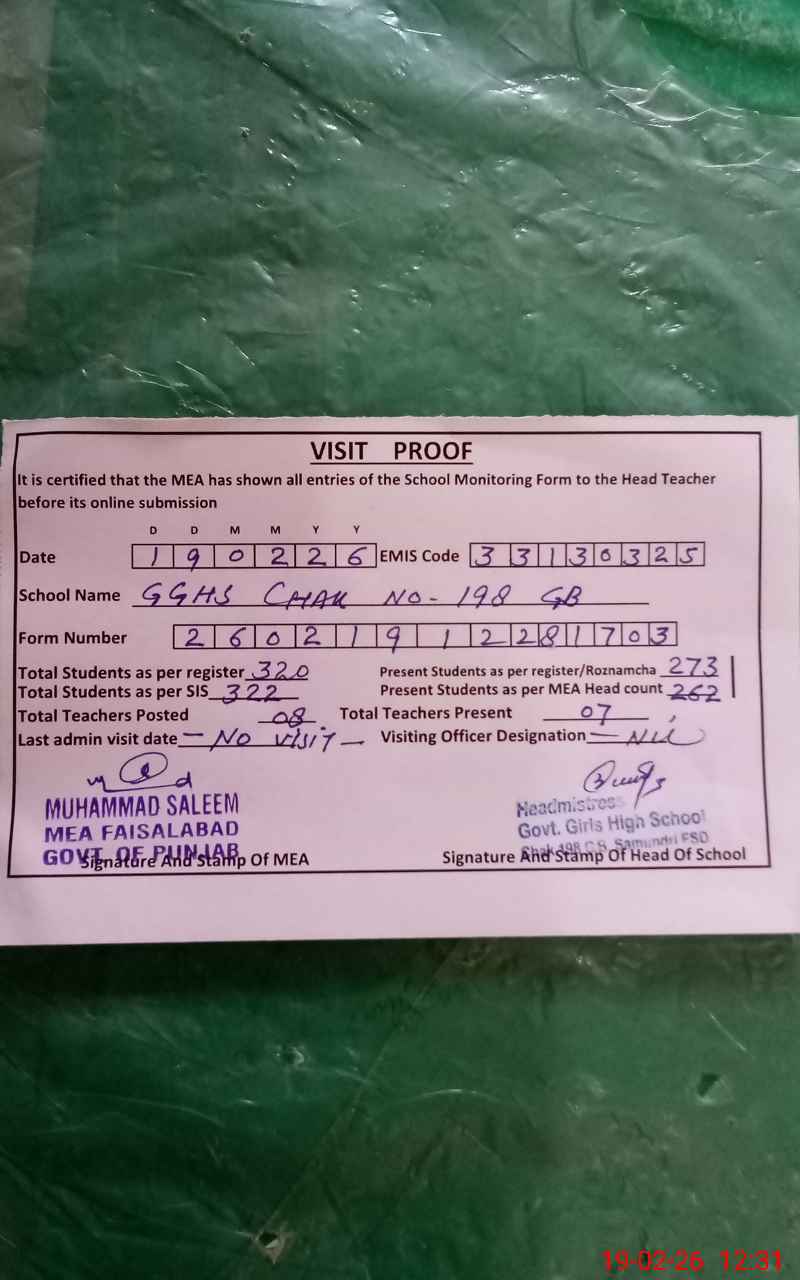 VISIT PROOF
It is certified that the MEA has shown all entries of the School Monitoring Form to the Head Teacher
before its online submission
D D M M Y Y
Date 1 9 0 2 2 6 EMIS Code 3 3 1 3 0 3 2 5
School Name GGHS CHAK NO- 198 GB
Form Number 2 6 0 2 1 9 1 2 2 8 1 7 0 3
Total Students as per register 320 Present Students as per register/Roznamcha 273
Total Students as per SIS 322 Present Students as per MEA Head count 262
Total Teachers Posted 08 Total Teachers Present 07
Last admin visit date - NO VISIT - Visiting Officer Designation - Nil
MUHAMMAD SALEEM
MEA FAISALABAD
GOVT. OF PUNJAB
Signature And Stamp Of MEA
Headmistress
Govt. Girls High School
Chak 198 G.B. Samundri FSD
Signature And Stamp Of Head Of School
19-02-26 12:31